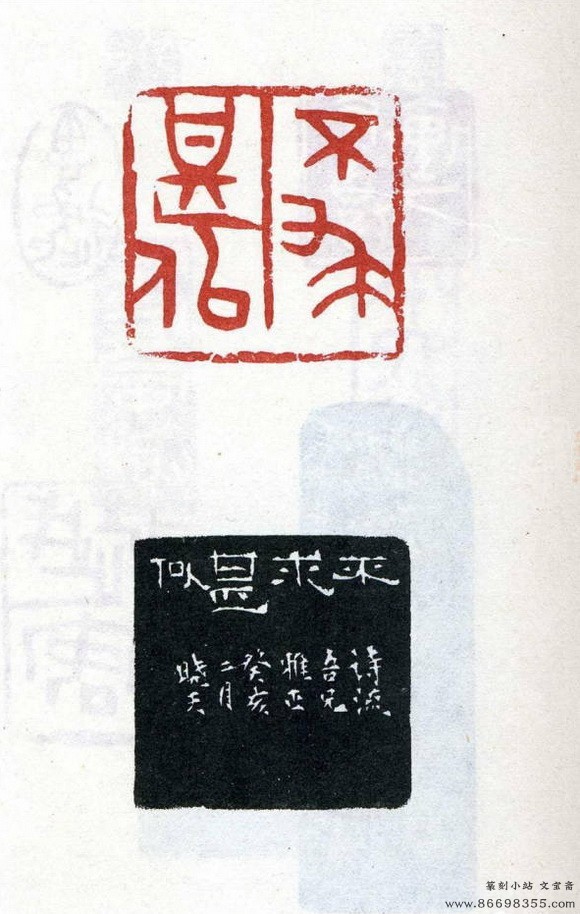 不求
甚似
不求甚似
诗流
吾兄
雅正
癸亥
二月
晓天
篆刻小站 文宝斋
www.86698355.com